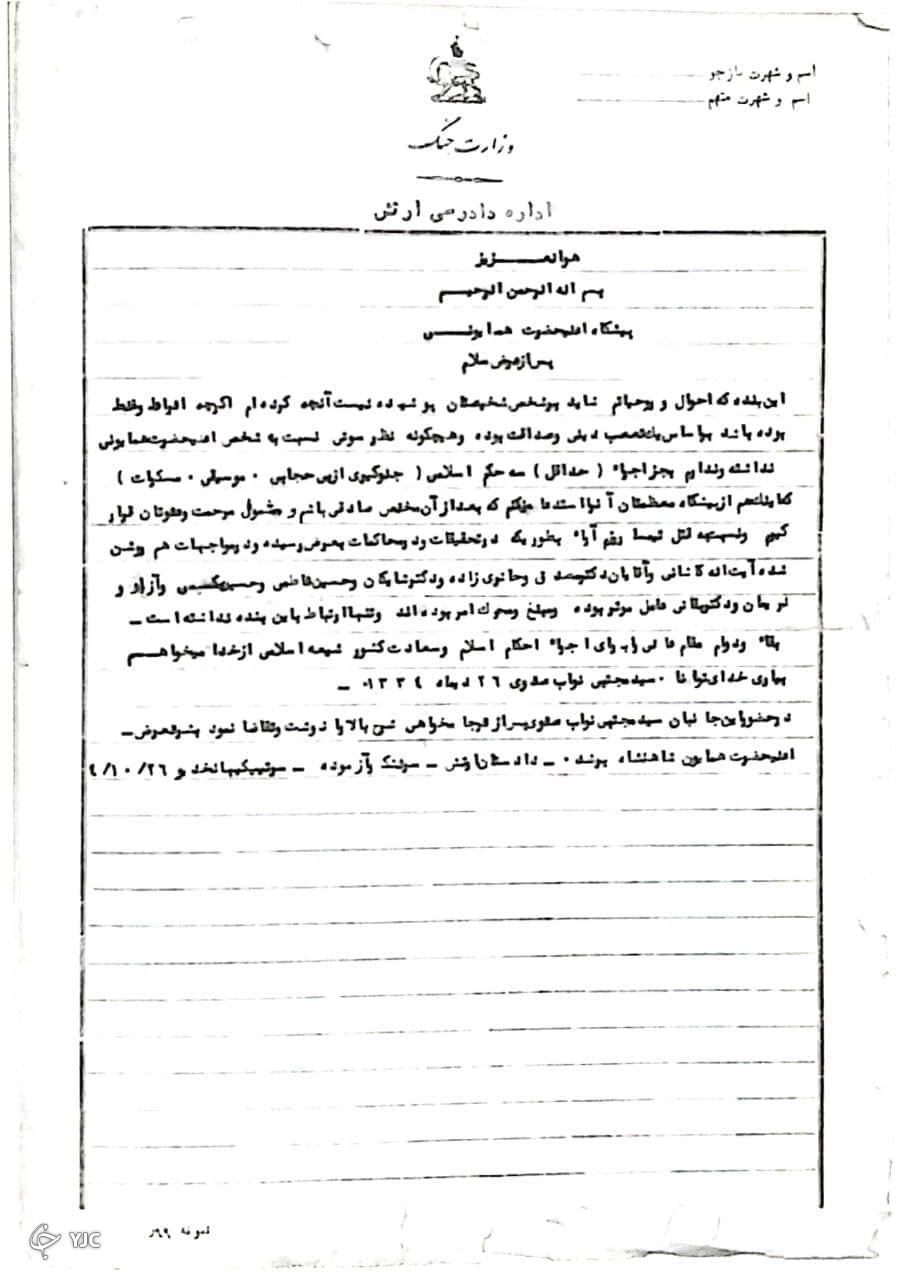 اسم و شهرت بازجو
اسم و شهرت متهم
وزارت جنگ
اداره دادرسی ارتش
هوالعــــزیز
بسم اله الرحمن الرحیــم
پیشگاه اعلیحضرت همایونــی
پس از عرض سلام
این بنده که احوال و روحیاتم شاید بر شخص شخیصتان پوشیده نیست آنچه کرده ام اگرچه افراط و غلط
بوده باشد بر اساس یک تعصب دینی و صداقت بوده و هیچگونه نظر سوئی نسبت به شخص اعلیحضرت همایونی
نداشته و ندارم بجز اجراء ( حداقل ) سه حکم اسلامی ( جلوگیری از بی حجابی ۰ موسیقی ۰ مسکرات )
که از پیشگاه معظمتان آنرا استدعا میکنم که بعد از آن مخلص صادقی باشم و مشمول مرحمت و عفوتان قرار
گیرم و نسبت به قتل تیمسار رزم آراء بطوریکه در تحقیقات و در محاکمات بعرض رسیده و در مواجهات هم روشن
شده آیت اله کاشانی و آقایان دکتر مصدق و حائری زاده و دکتر شایگان و حسین فاطمی و حسین مکی و آزاد و
نریمان و دکتر بقائی عامل موثر بوده و مبلغ و محرک امر بوده اند و تنها ارتباط با این بنده نداشته است ـ
بقاء و دوام مقام عالی را برای اجراء احکام اسلام و سعادت کشور شیعه اسلامی از خدا میخواهــم
بیاری خدای توانا ۰ سید مجتبی نواب صفوی ۲۶ دیماه ۱۳۳۴ ۰ ـ
در حضور این جانبان سید مجتبی نواب صفوی پس از قرجا مخواهی شرح بالا را نوشت و تقاضا نمود بشرفعرض ـ
اعلیحضرت همایون شاهنشاه برسد ۰ ـ دادستان ارتش ـ سرلشگر آزموده ـ سرتیپ کیهانخدیو ۲۶/۱۰/۴
نمونه ۱۹۹ر
YJC